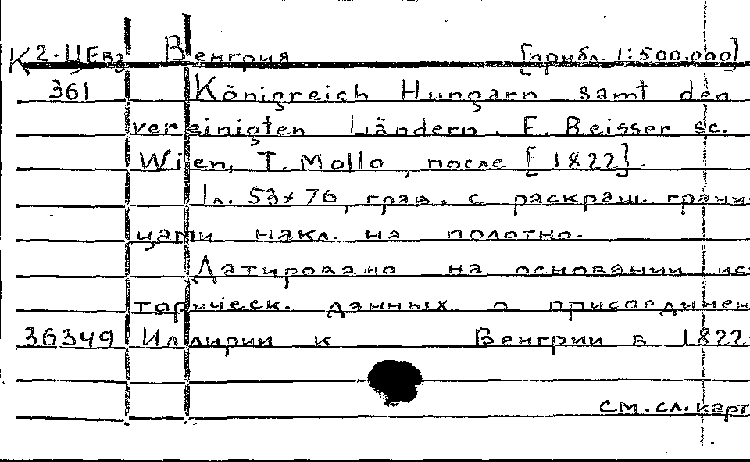 К2-ЦЕвз Венгрия [прибл. 1:500,000]
361 Königreich Hungarn samt den
vereinigten Ländern. F. Reisser sc.
Wien, T. Mollo, после [1822].
1л. 53×76, грав. с раскраш. грани-
цами накл. на полотно.
Датировано на основании ис
торическ. данных о присоединен
36349 Иллирии к Венгрии в 1822
см. сл. карт